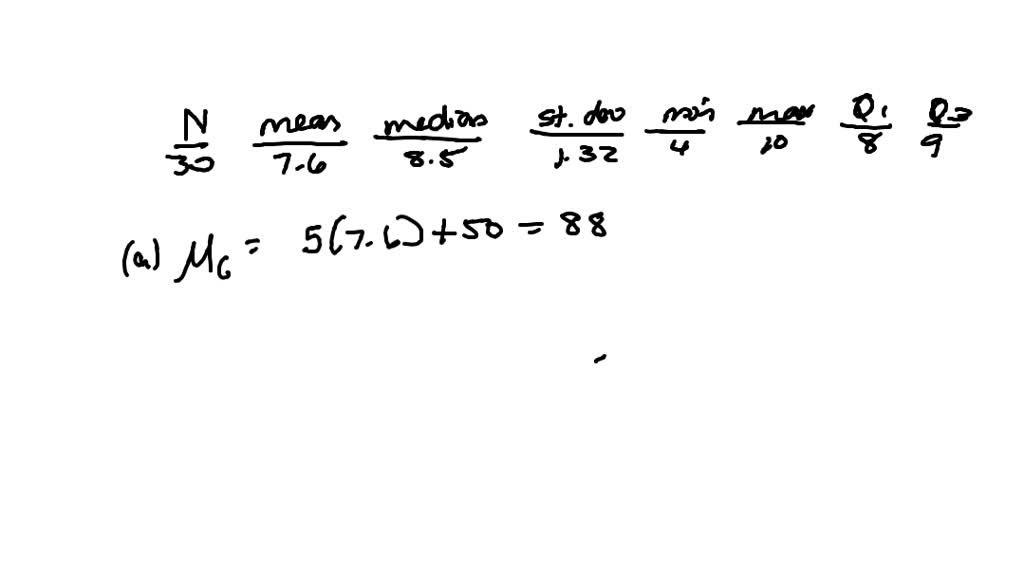 N mean median st. dev min max Q1 Q3
30 7.6 8.5 1.32 4 10 8 9
(a) μG = 5(7.6)+50 = 88